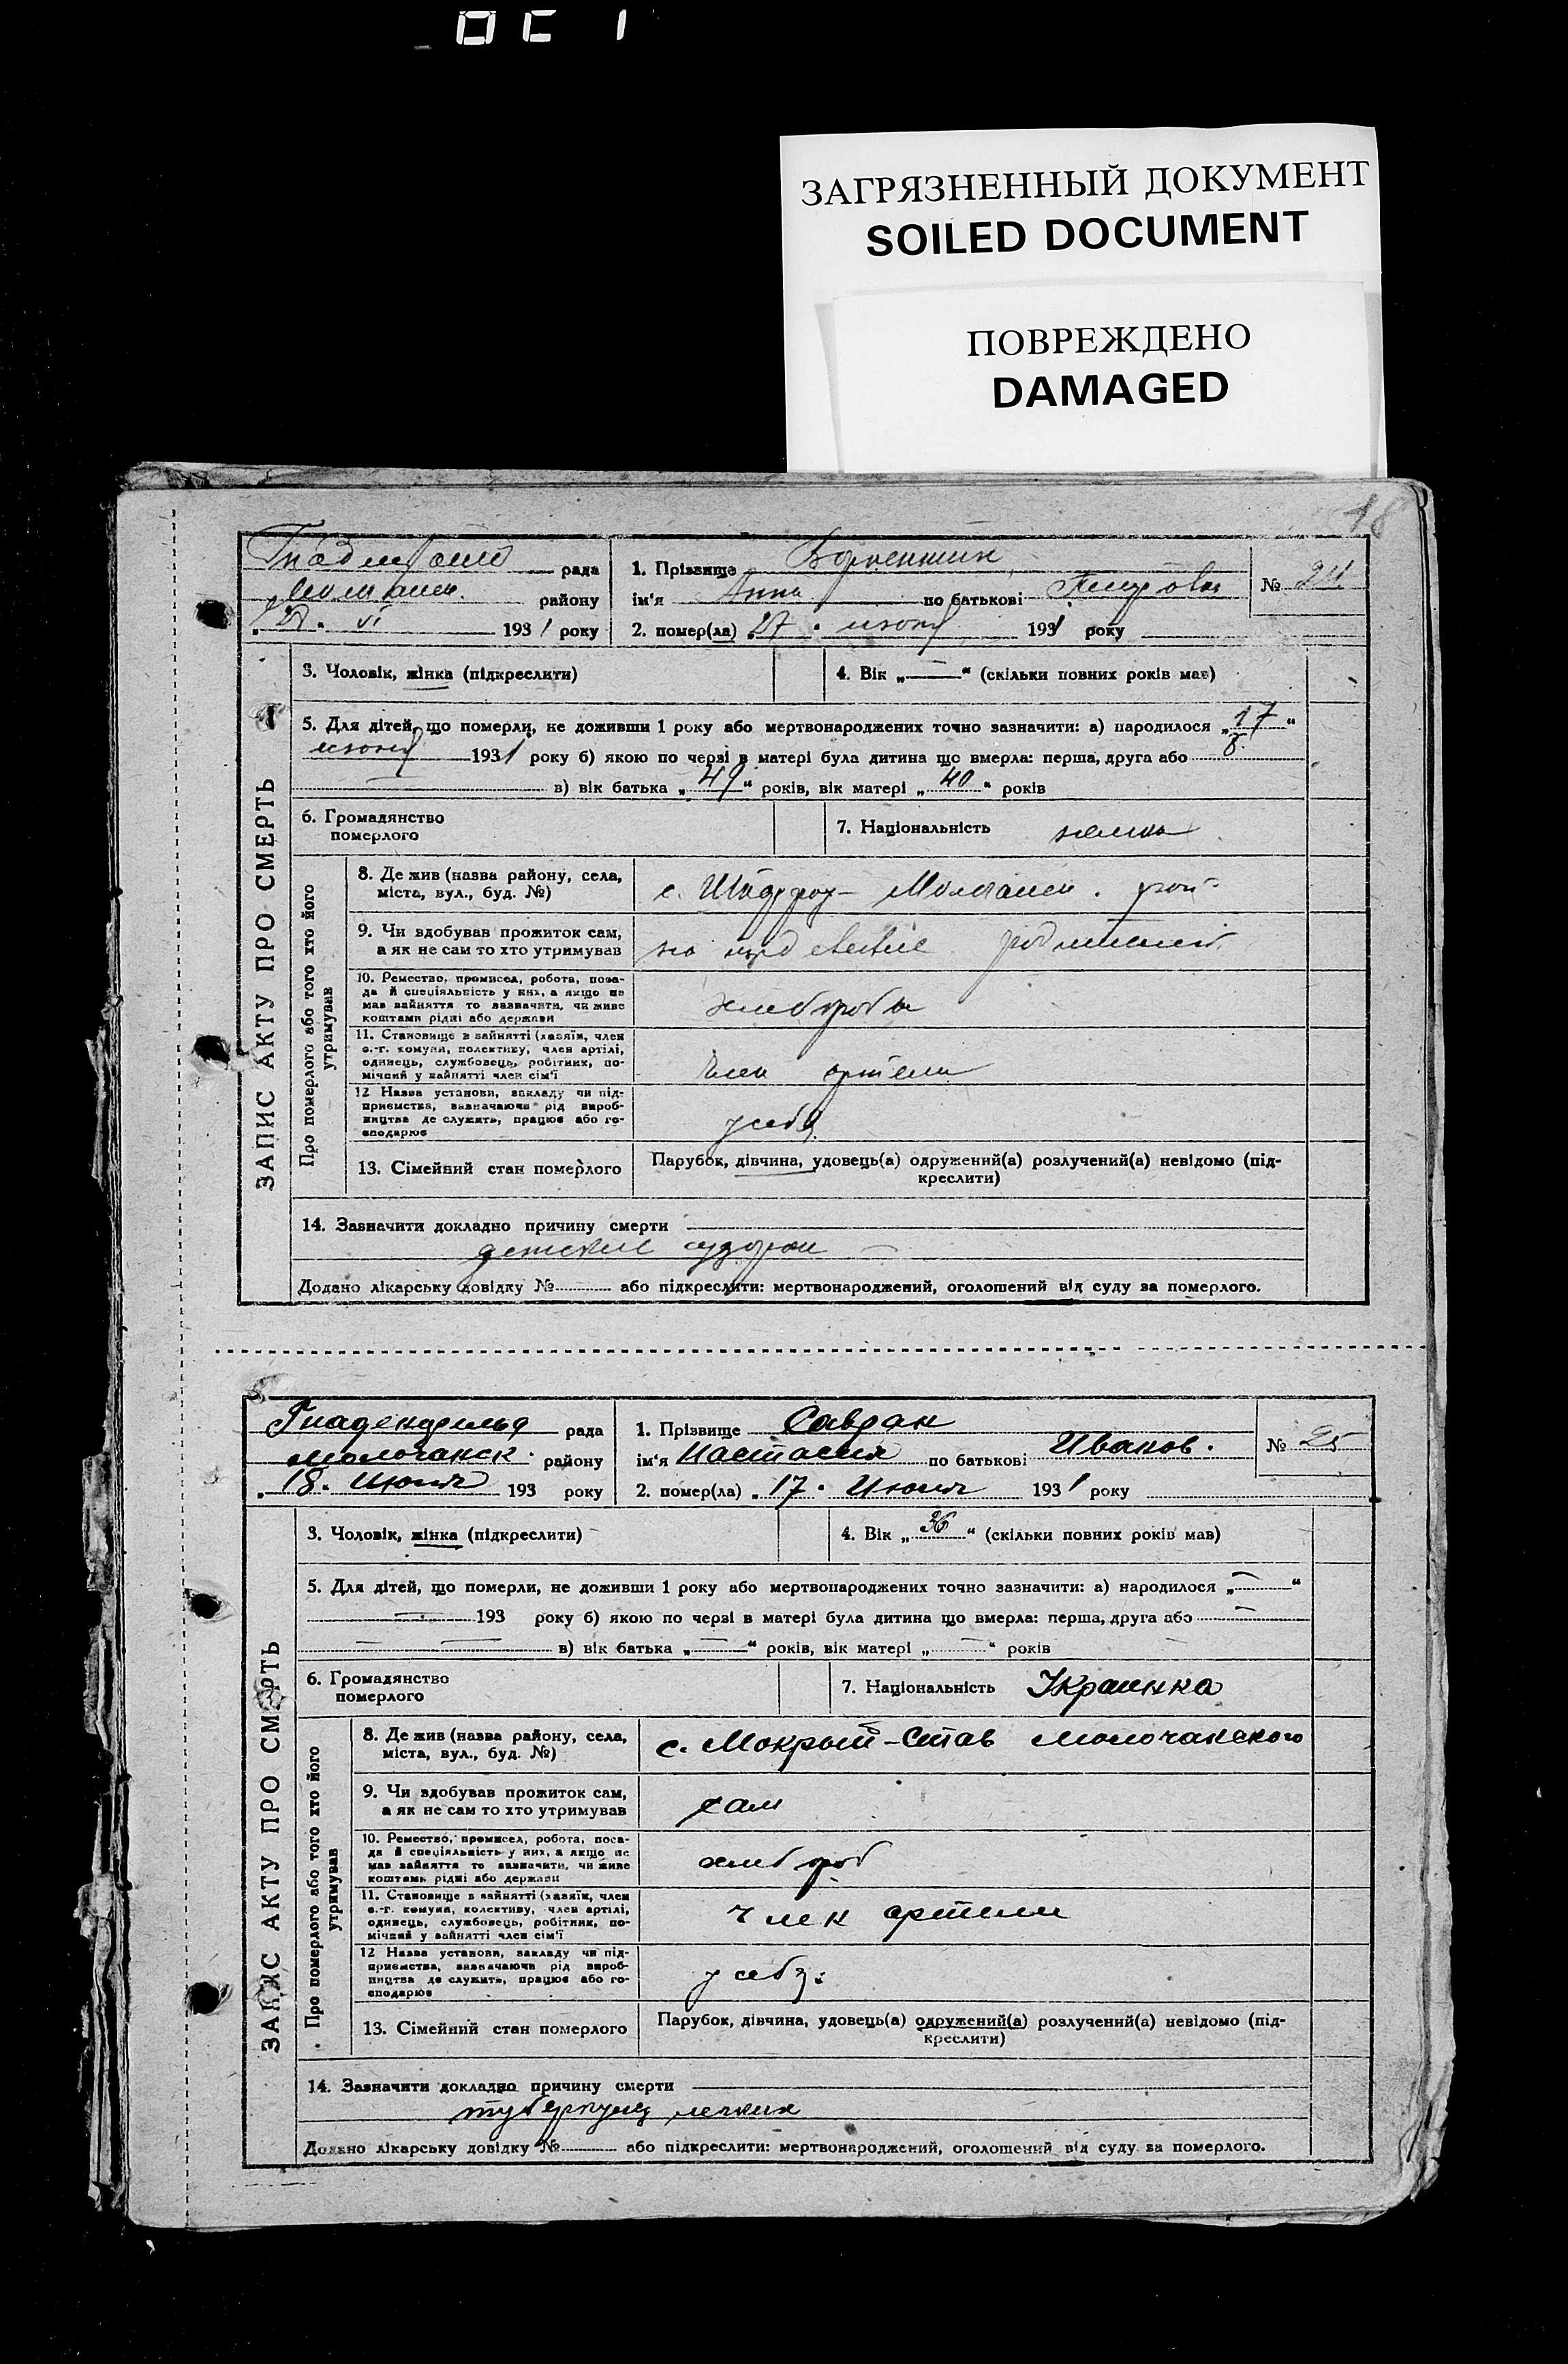 ЗАГРЯЗНЕННЫЙ ДОКУМЕНТ
SOILED DOCUMENT
ПОВРЕЖДЕНО
DAMAGED
18
рада
району
28. VI 1931 року
1. Прізвище
ім'я Анна по батькові Петровна
2. помер(ла) „27" июня 1931 року
№ 24
ЗАПИС АКТУ ПРО СМЕРТЬ
3. Чоловік, жінка (підкреслити)
4. Вік „—" (скільки повних років мав)
5. Для дітей, що померли, не доживши 1 року або мертвонароджених точно зазначити: а) народилося „17"
июня 1931 року б) якою по черзі в матері була дитина що вмерла: перша, друга або 8.
в) вік батька „49" років, вік матері „40" років
6. Громадянство
померлого
7. Національність немка
Про померлого або того хто його
утримував
8. Де жив (назва району, села,
міста, вул., буд. №)
с. Молочанск.
9. Чи вдобував прожиток сам,
а як не сам то хто утримував
родителей
10. Ремество, промисел, робота, поса-
да й спеціяльність у них, а якщо не
мав зайняття то зазначити, чи живе
коштами рідні або держави
хлебороб
11. Становище в зайнятті (хазяїн, член
с.-г. комуни, колективу, член артілі,
одинець, службовець, робітник, по-
мічний у зайнятті член сім'ї
член артели
12 Назва установи, закладу чи під-
приємства, зазначаючи рід вироб-
ництва де служить, працює або го-
сподарює
у себя
13. Сімейний стан померлого
Парубок, дівчина, удовець(а) одружений(а) розлучений(а) невідомо (під-
креслити)
14. Зазначити докладно причину смерти
детские судороги
Додано лікарську довідку № або підкреслити: мертвонароджений, оголошений від суду за померлого.
Гнаденфельд рада
Молочанск. району
„18. Июня 193 року
1. Прізвище Савран
ім'я Настасия по батькові Иванов.
2. помер(ла) „17" Июня 1931 року
№ 25
ЗАПИС АКТУ ПРО СМЕРТЬ
3. Чоловік, жінка (підкреслити)
4. Вік „36" (скільки повних років мав)
5. Для дітей, що померли, не доживши 1 року або мертвонароджених точно зазначити: а) народилося „—"
— 193 року б) якою по черзі в матері була дитина що вмерла: перша, друга або —
— — в) вік батька „—" років, вік матері „—" років
6. Громадянство
померлого
7. Національність Украинка
Про померлого або того хто його
утримував
8. Де жив (назва району, села,
міста, вул., буд. №)
с. Мокрый-Став Молочанского
9. Чи вдобував прожиток сам,
а як не сам то хто утримував
сам
10. Ремество, промисел, робота, поса-
да й спеціяльність у них, а якщо не
мав зайняття то зазначити, чи живе
коштами рідні або держави
хлебороб
11. Становище в зайнятті (хазяїн, член
с.-г. комуни, колективу, член артілі,
одинець, службовець, робітник, по-
мічний у зайнятті член сім'ї
член артели
12 Назва установи, закладу чи під-
приємства, зазначаючи рід вироб-
ництва де служить, працює або го-
сподарює
у себя
13. Сімейний стан померлого
Парубок, дівчина, удовець(а) одружений(а) розлучений(а) невідомо (під-
креслити)
14. Зазначити докладно причину смерти
туберкулез легких
Додано лікарську довідку № або підкреслити: мертвонароджений, оголошений від суду за померлого.